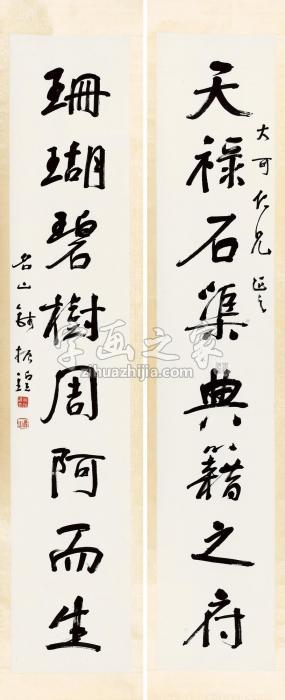 天禄石渠典籍之府
大可仁兄正之
珊瑚碧樹周阿而生
名山錢振鍠
字画之家
zihuazhijia.com